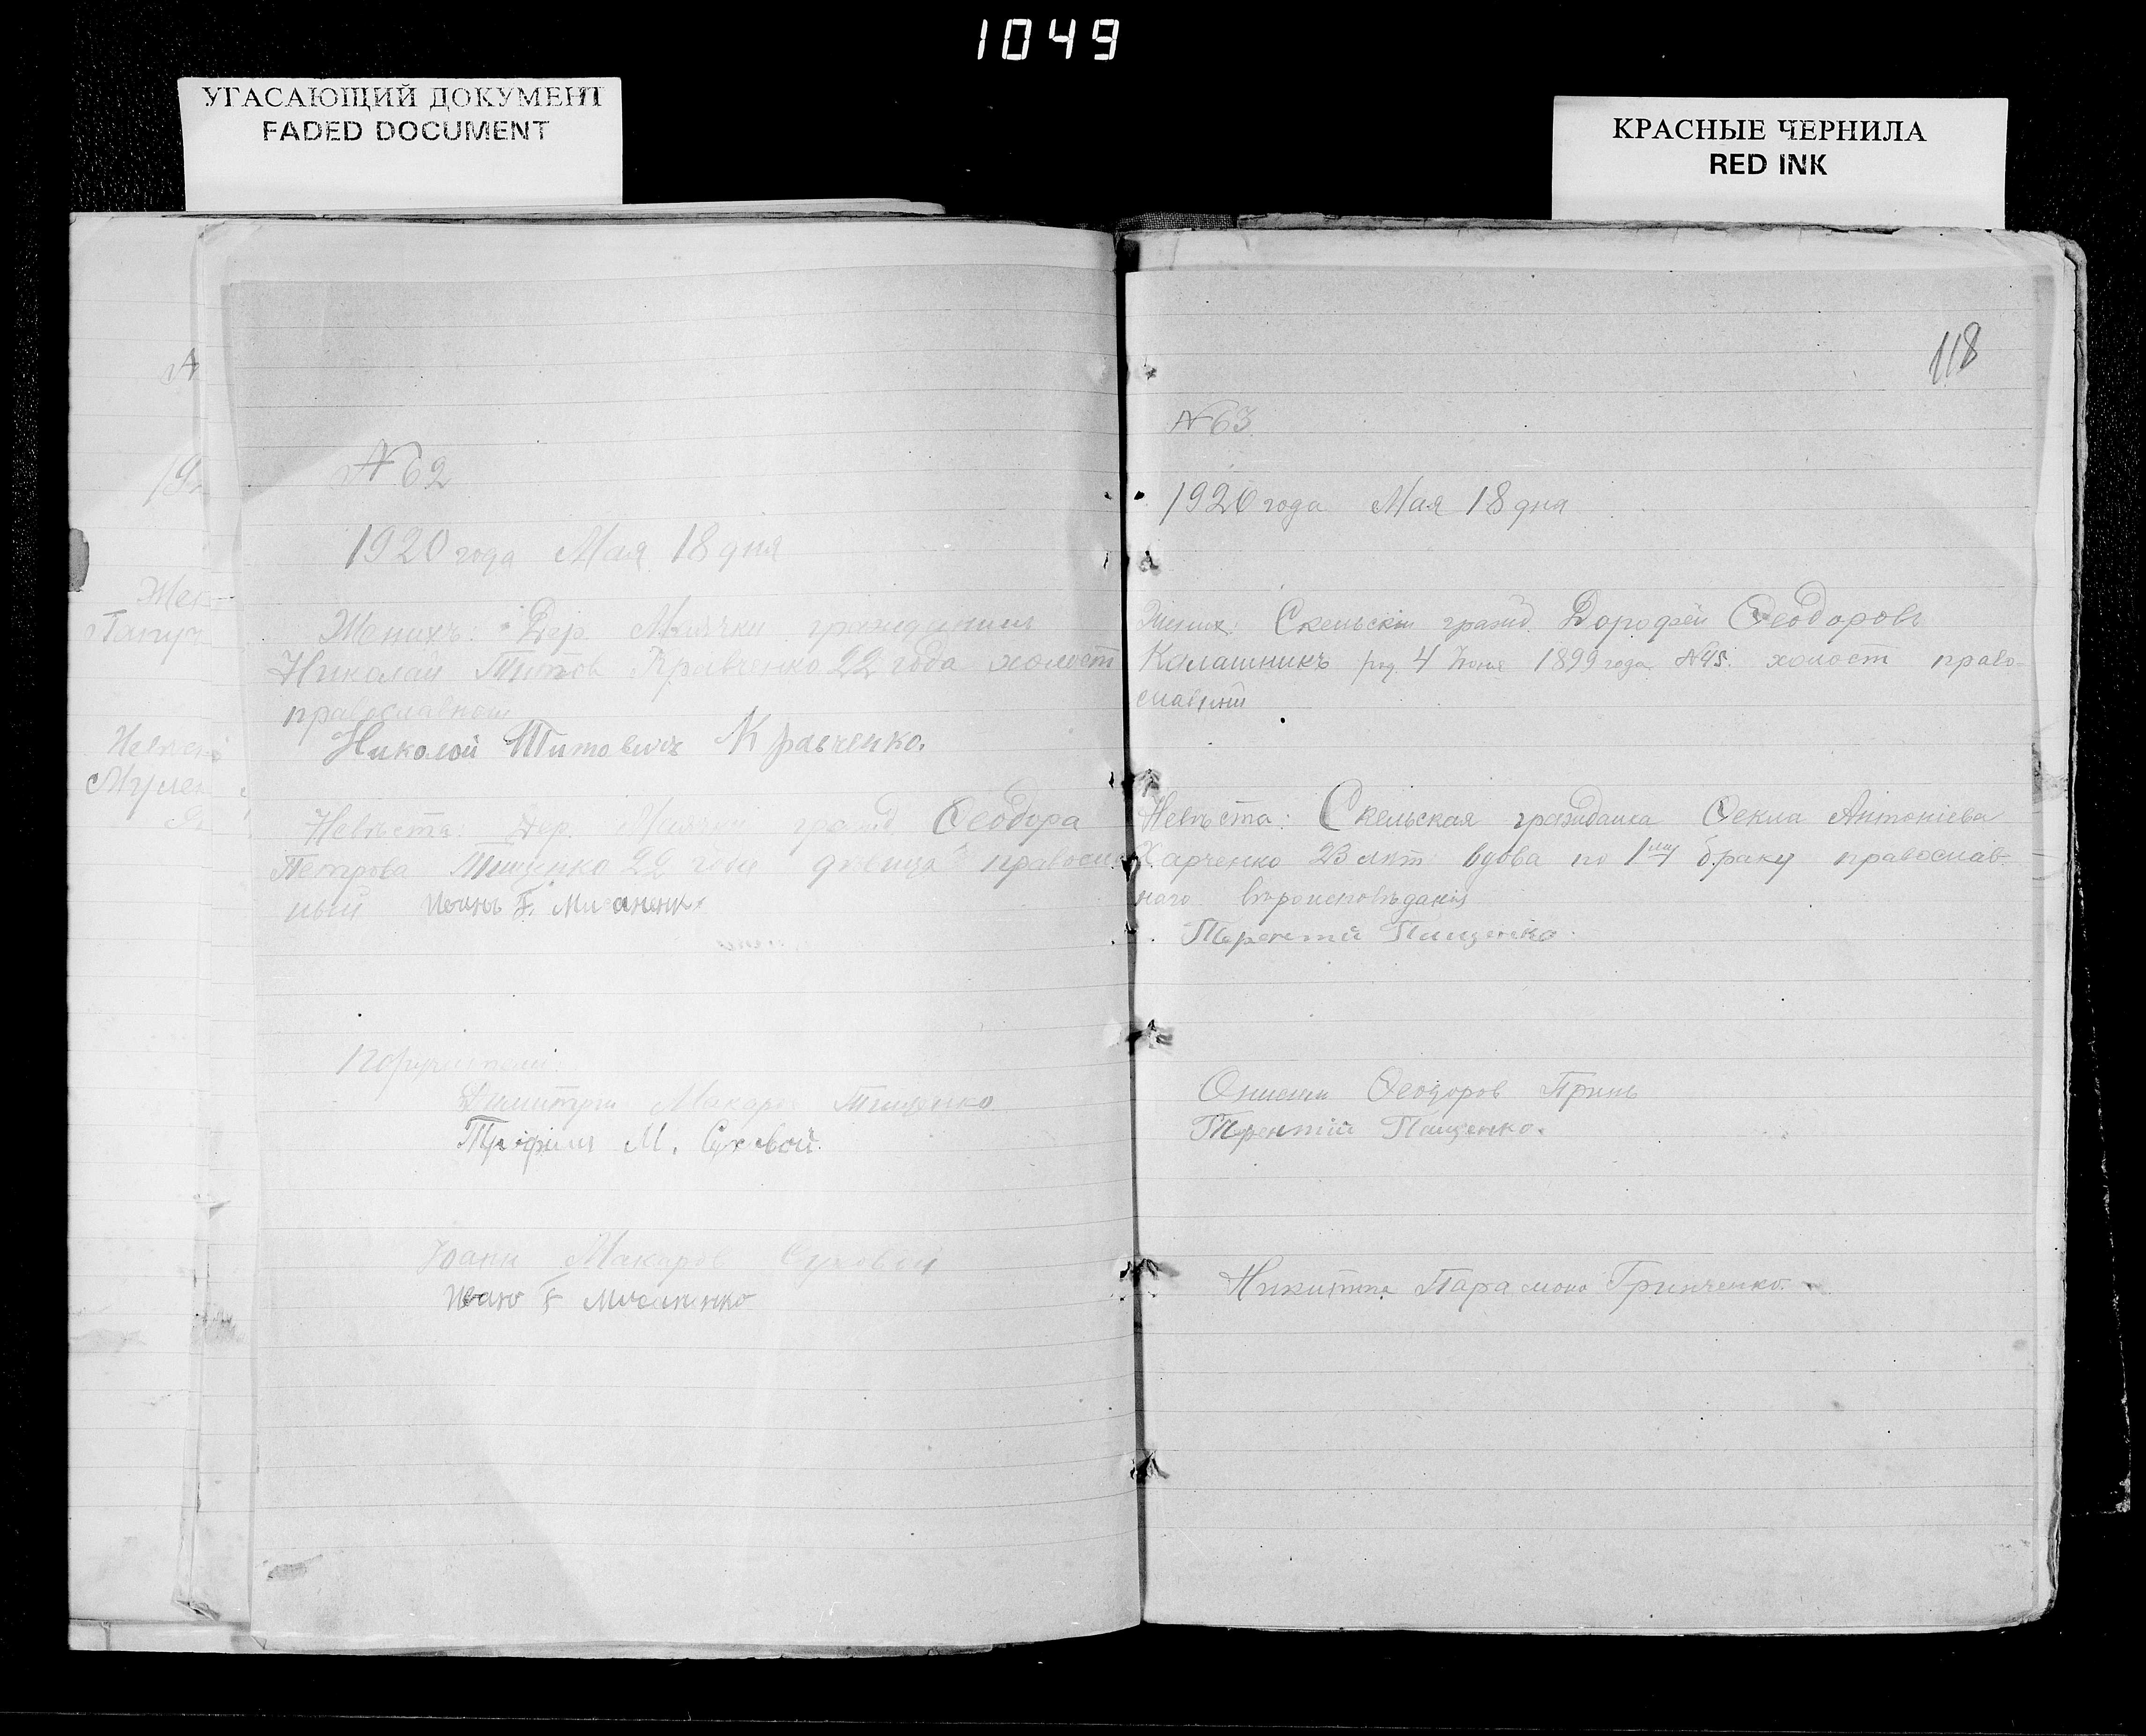 1049
УГАСАЮЩИЙ ДОКУМЕНТ
FADED DOCUMENT
КРАСНЫЕ ЧЕРНИЛА
RED INK
№ 62
1920 года Мая 18 дня
Женихъ: Дер. Мячки гражданинъ
Николай Титов Кравченко 22 года холост
православный
Николой Титовичъ Кравченко.
Невѣста. Дер. Мячки гражд. Ѳеодора
Петрова Тищенко 22 года дѣвица православ
ный
Поручители:
Димитрий Макаров Тищенко
Трофимъ М. Суховой.
Иоанн Макаров Суховой
118
№ 63
1920 года Мая 18 дня
Жених: Скельский гражд. Дорофей Ѳеодоровъ
Калашникъ род. 4 Июня 1899 года №45. холост право-
славный
Невѣста: Скельская гражданка Ѳекла Антоніева
Харченко 23 лѣт вдова по 1му браку православ-
наго вѣроисповѣданія
Терентій Пащенко.
Ѳеодоров Гринь
Терентій Пащенко.
Никитта Парамоно Гринченко.